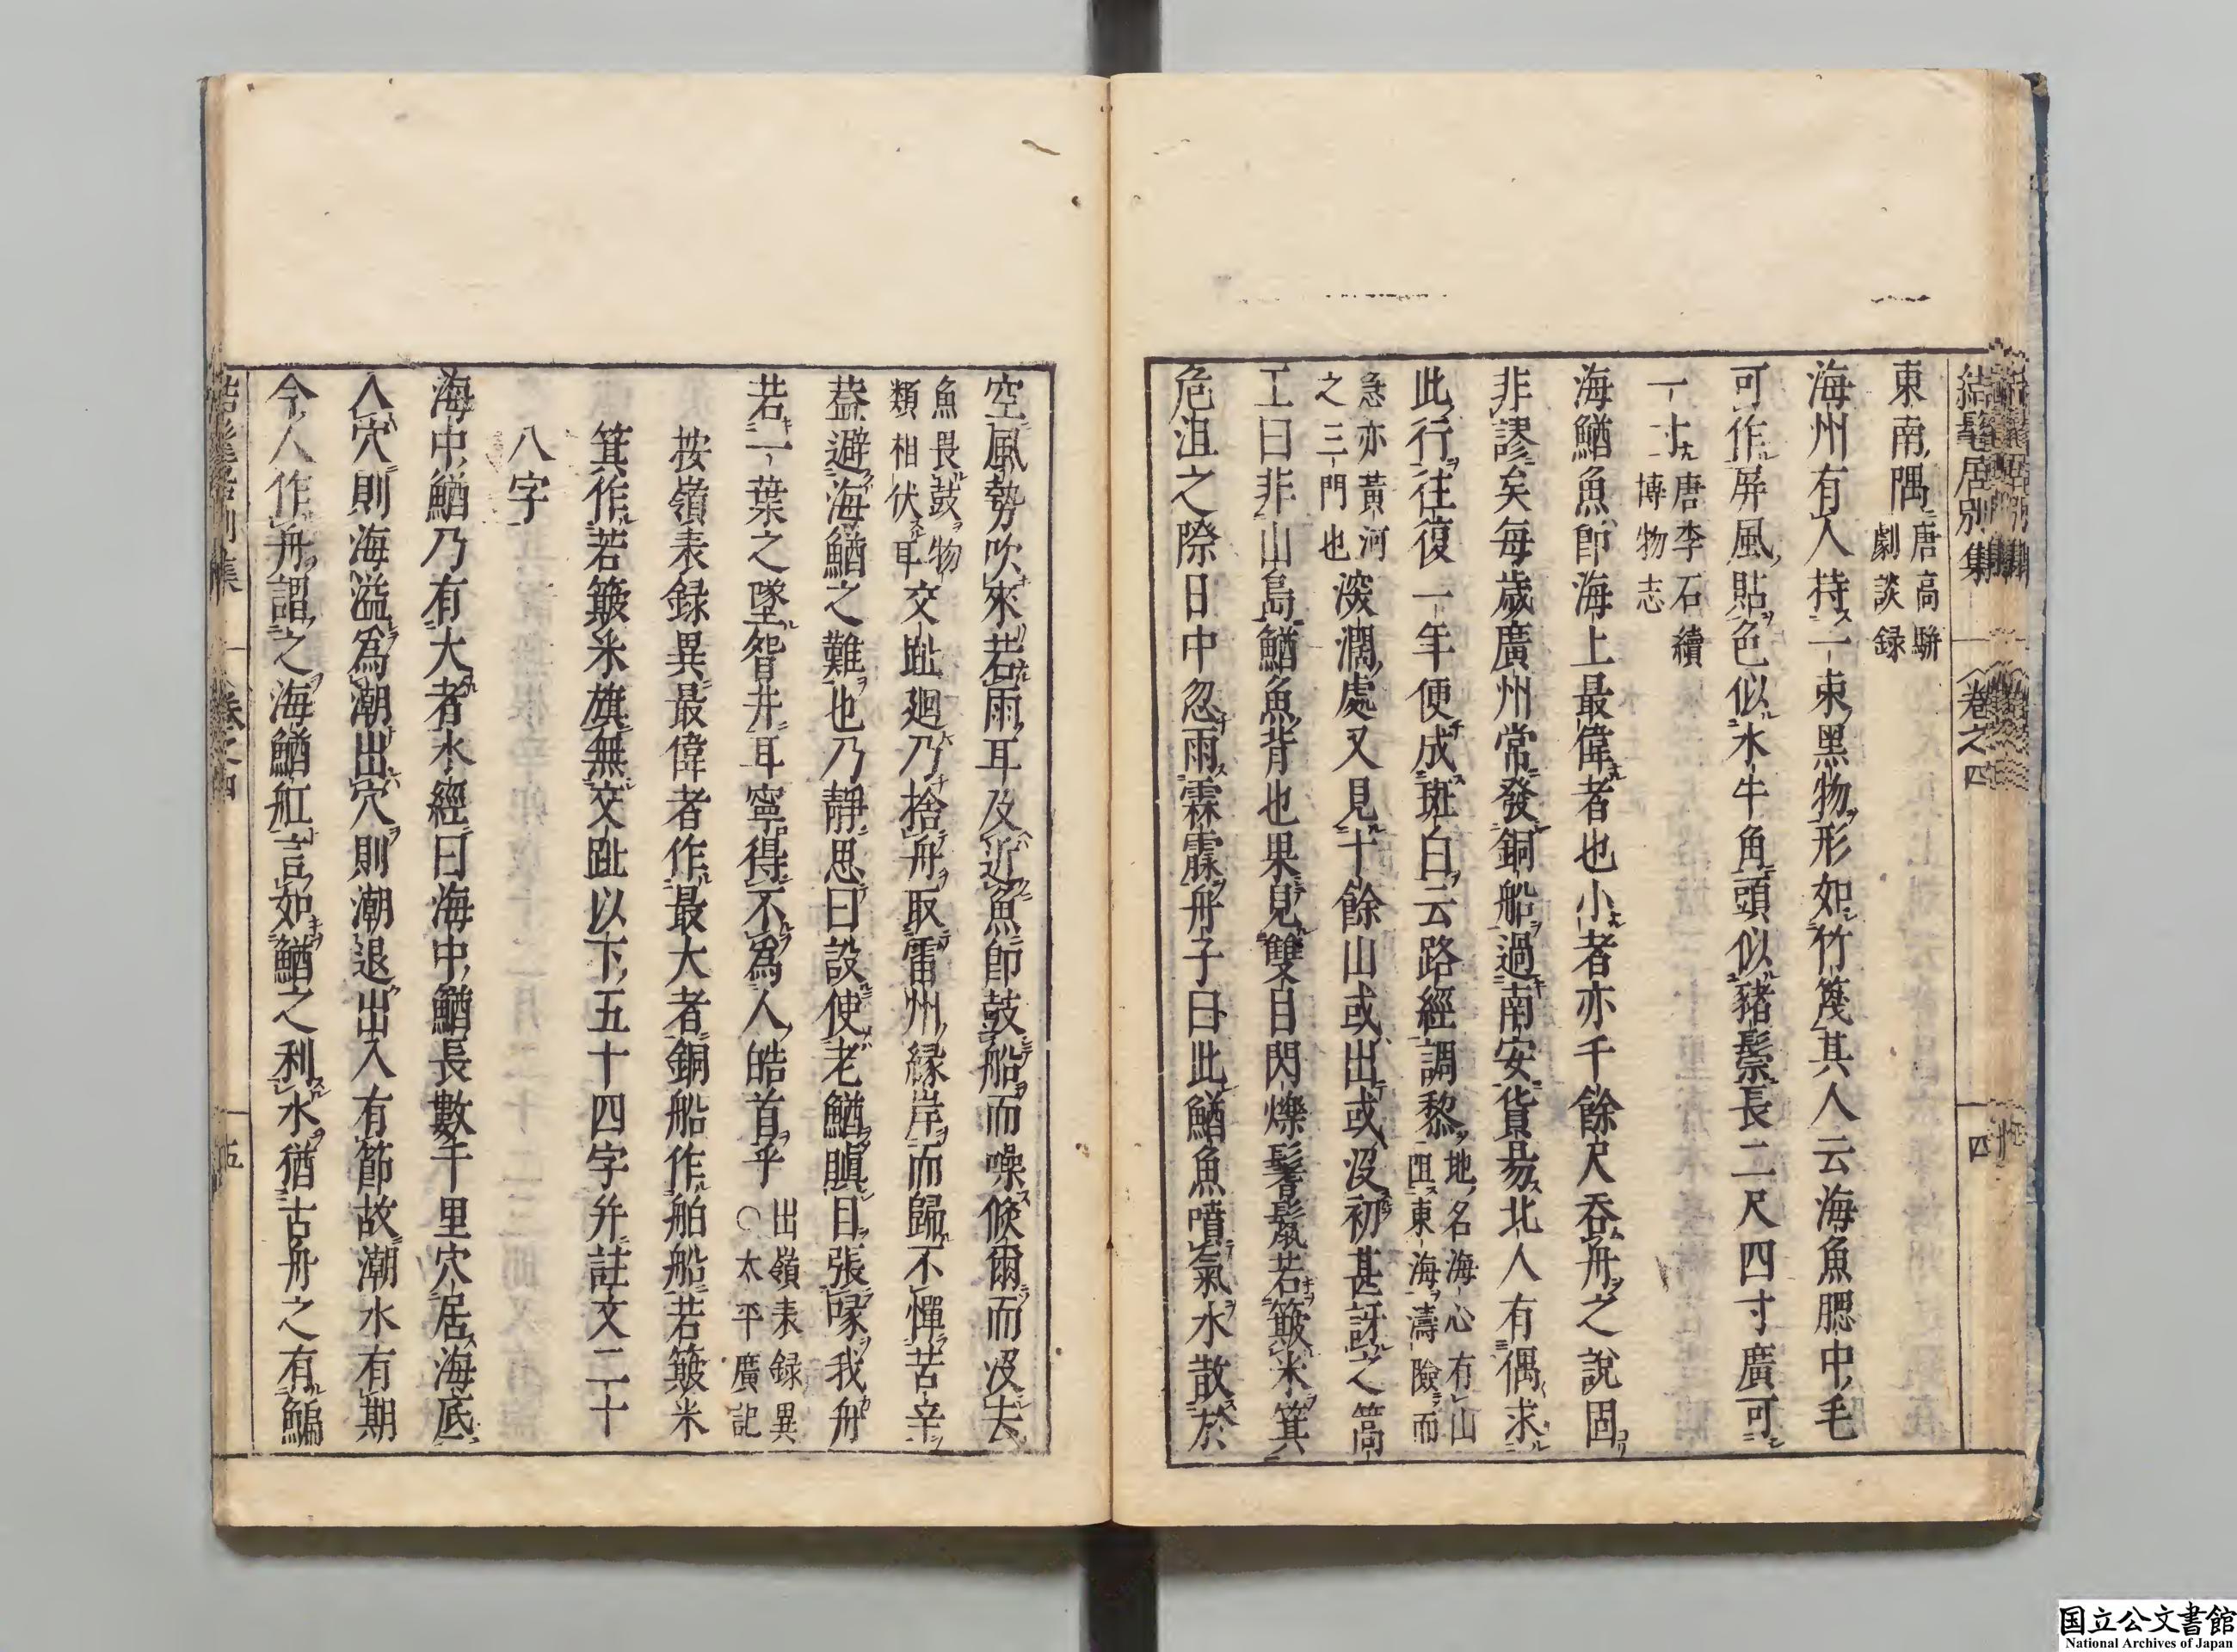 結髦居別集 卷之四 四
東南隅唐高駢劇談録
海州有人持一束黑物形如竹篾其人云海魚腮中毛
可作屏風貼色似水牛角頭似豬鬃長二尺四寸廣可
一寸唐李石續博物志
海鰌魚即海上最偉者也小者亦千餘尺吞舟之說固
非謬矣每歲廣州常發銅船過南安貨易北人有偶求
此行往復一年便成斑白云路經調黎地名海心有山阻東海濤險而
急亦黃河之三門也深濶處又見十餘山或出或沒初甚訝之篙
工曰非山島鰌魚背也果見雙目閃爍鬐鬣若簸米箕
危沮之際日中忽雨霡霂舟子曰此鰌魚噴氣水散於
空風勢吹來若雨耳及近魚即鼓船而噪倏爾而沒去
魚畏鼓物類相伏耳交趾廻乃捨舟取雷州縁岸而歸不憚苦辛
葢避海鰌之難也乃靜思曰設使老鰌瞋目張喙我舟
若一葉之墜眢井耳寧得不為人皓首乎出嶺表録異○太平廣記
按嶺表録異最偉者作最大者銅船作舶船若簸米
箕作若簸米旗無交趾以下五十四字并註文二十
八字
海中鰌乃有大者水經曰海中鰌長數千里穴居海底
入穴則海溢為潮出穴則潮退出入有節故潮水有期
今人作舟謂之海鰌舡言如鰌之利水猶古舟之有鯿
卷之四 五
国立公文書館
National Archives of Japan